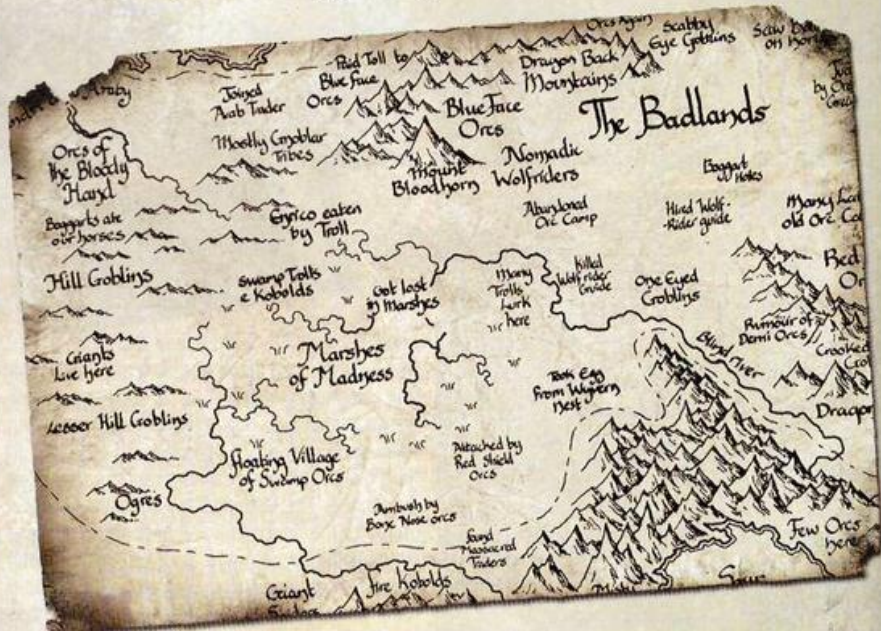 Orcs Again
Scabby
Eye Goblins
Araby
Joined
Arab Trader
Paid Toll to
Blue Face
Orcs
Dragon Back
Mountains
Blue Face
Orcs
The Badlands
Mostly Gnoblar
Tribes
Orcs of
the Bloody
Hand
Mount
Bloodhorn
Nomadic
Wolfriders
Boggart
Holes
Boggarts ate
our horses
Enrico eaten
by Troll
Abandoned
Orc Camp
Hired Wolf-
-Rider guide
Many
old Orc
Hill Goblins
Swamp Trolls
& Kobolds
Got lost
in Marshes
Many
Trolls
Lurk
here
Killed
Wolfrider
Guide
One Eyed
Goblins
Red
Giants
Live here
Marshes
of Madness
Blind river
Rumour of
Demi Orcs
Crooked
Took Egg
From Wyvern
Nest
Lesser Hill Goblins
Floating Village
of Swamp Orcs
Attacked by
Red Shield
Orcs
Ogres
Ambush by
Bone Nose orcs
Found
Massacred
Traders
Few Orcs
here
Giant
Fire Kobolds
Misty